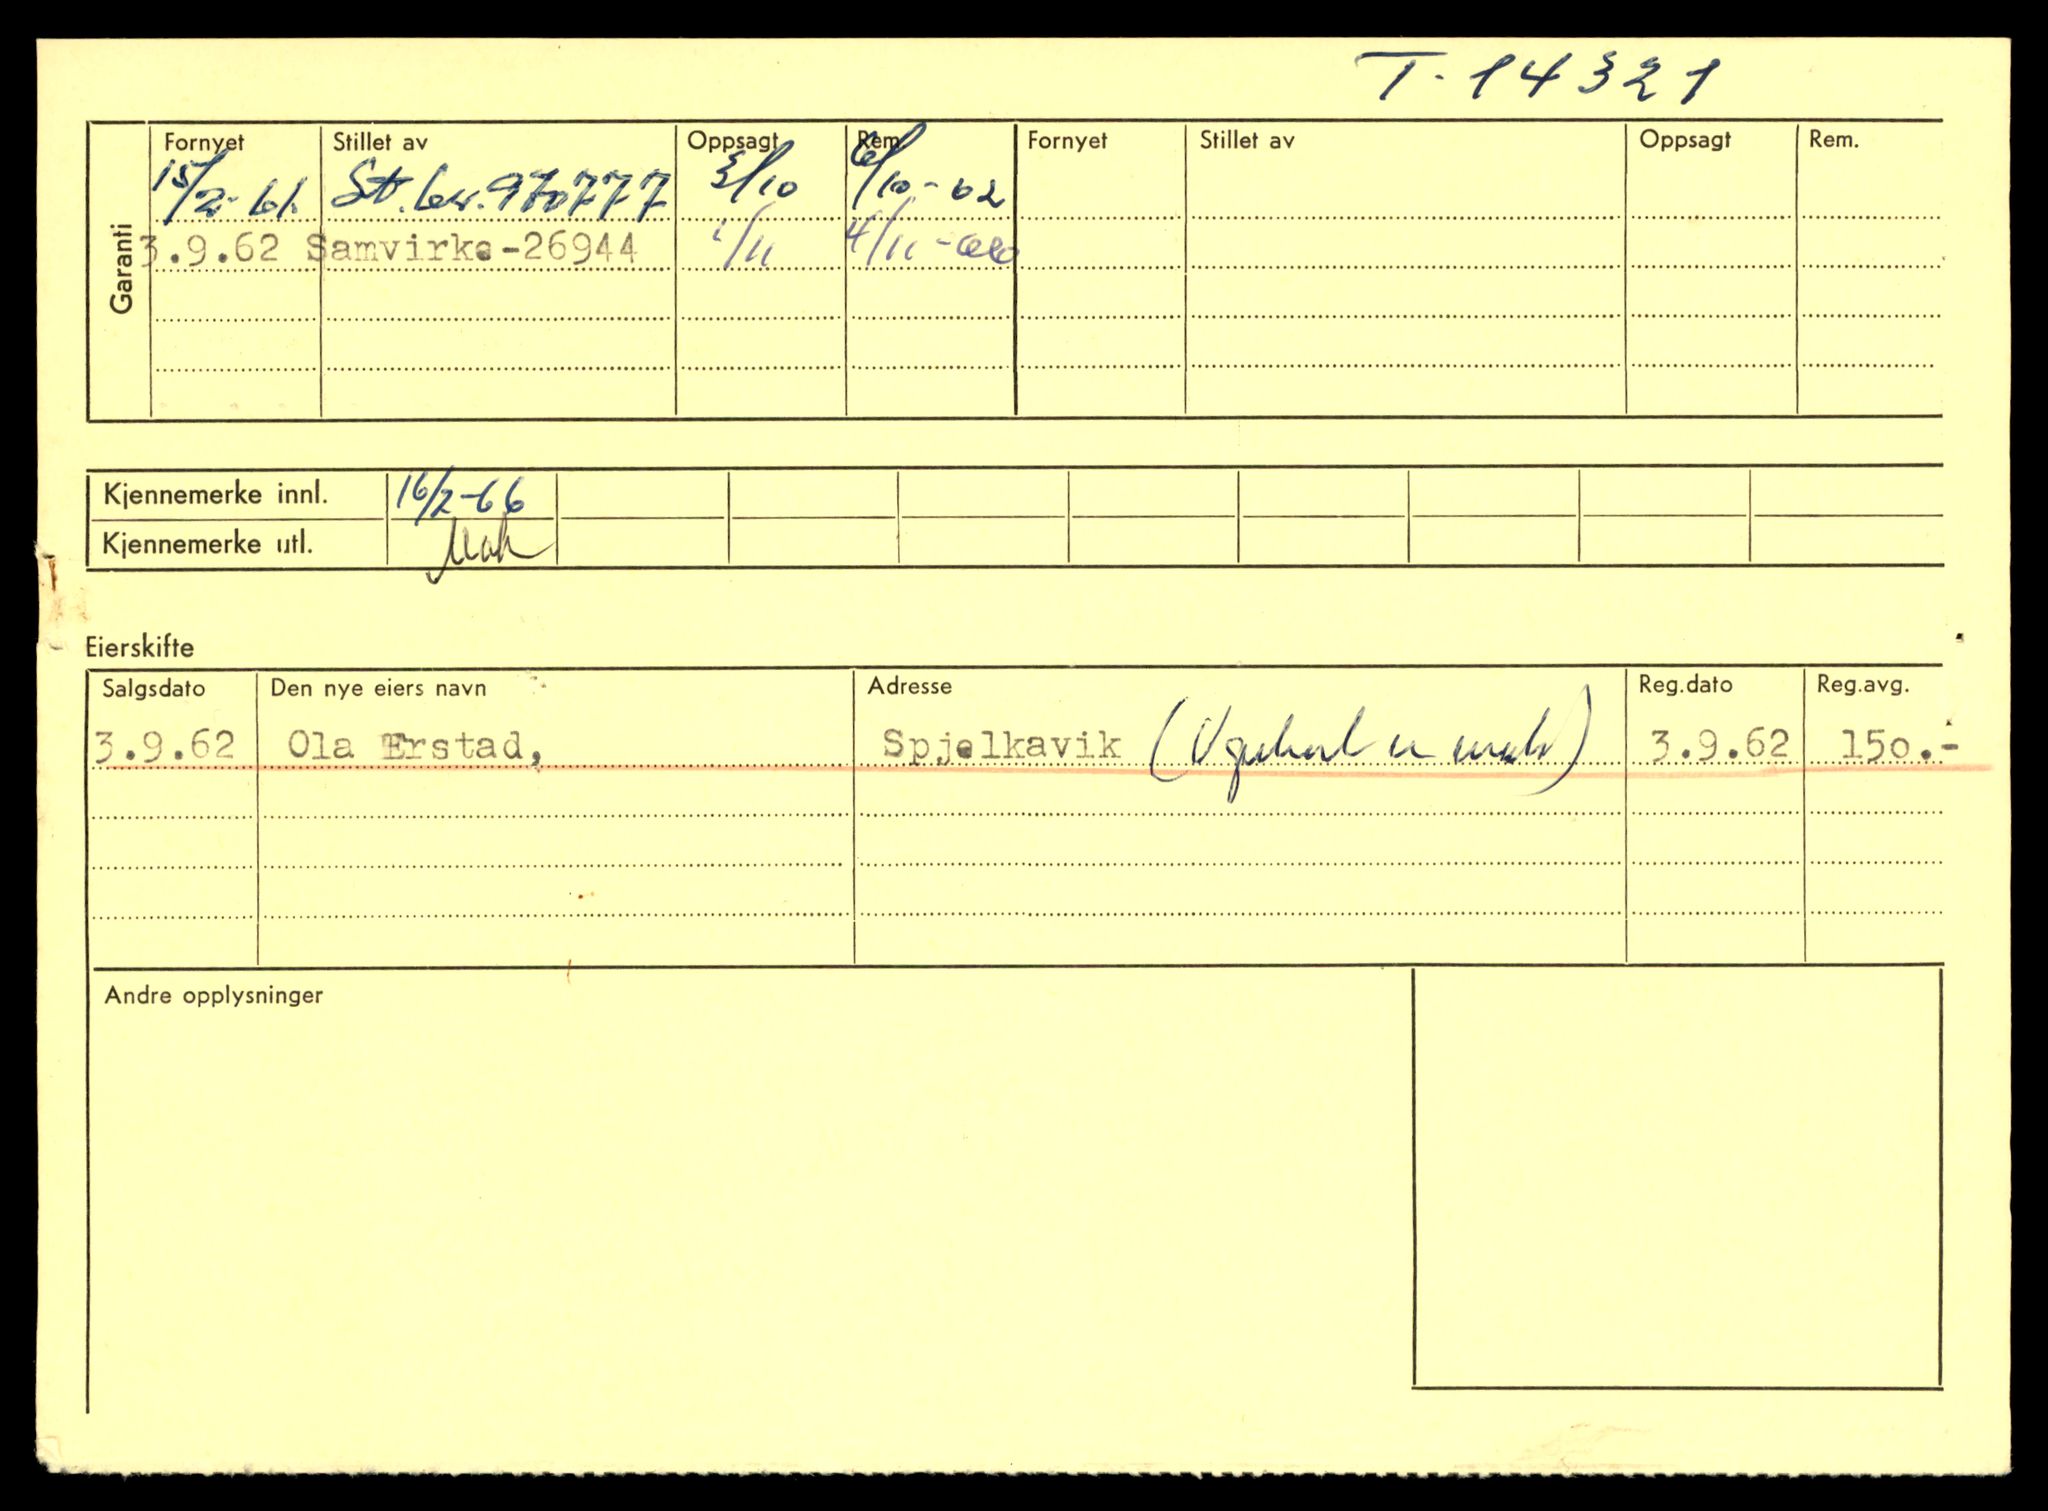 T-14321
Garanti
Fornyet Stillet av Oppsagt Rem. Fornyet Stillet av Oppsagt Rem.
15/2-61. St.br.970777 3/10 6/10-62
3.9.62 Samvirke-26944 1/11 4/11-
Kjennemerke innl. 16/2-66
Kjennemerke utl.
Eierskifte
Salgsdato Den nye eiers navn Adresse Reg.dato Reg.avg.
3.9.62 Ola Erstad, Spjelkavik 3.9.62 150.-
Andre opplysninger